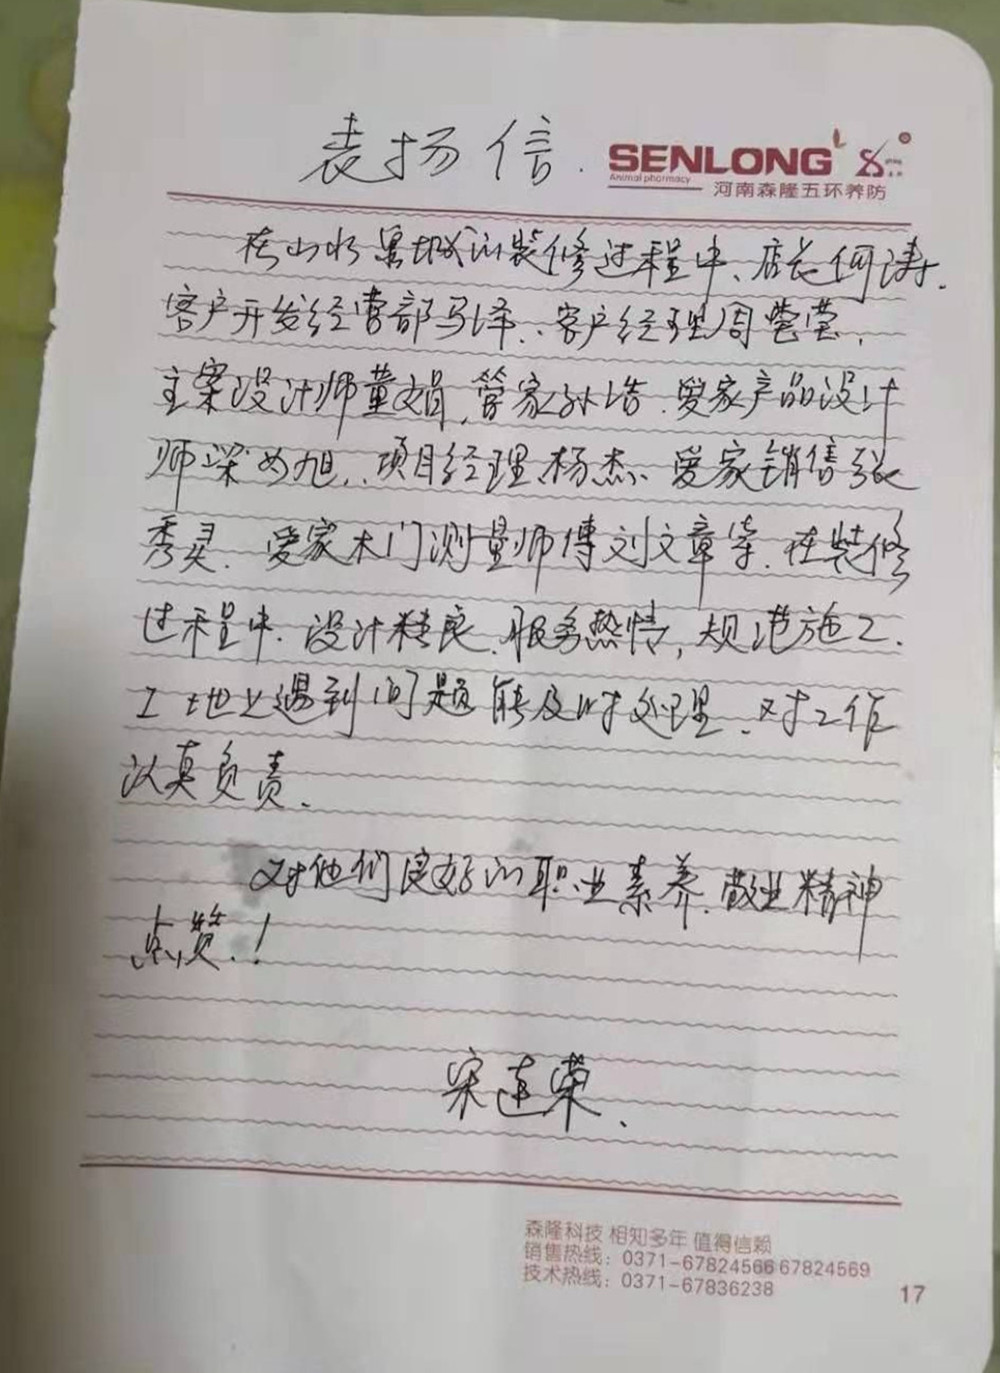 表扬信.
SENLONG
Animal pharmacy
河南森隆五环养防
在山水黑城的装修过程中、店长何涛.
客户开发经营部马泽、客户经理周莹莹,
主案设计师董文娟,管家孙浩.爱家产品设计
师梁如旭.项目经理杨杰、爱家销售张
秀灵.爱家木门测量师傅刘文章等.在装修
过程中.设计精良.服务热情,规范施工.
工地上遇到问题能及时处理、对工作
认真负责.
对他们良好的职业素养.敬业精神
点赞.!
宋连荣.
森隆科技 相知多年 值得信赖
销售热线:0371-67824566 67824569
技术热线:0371-67836238
17